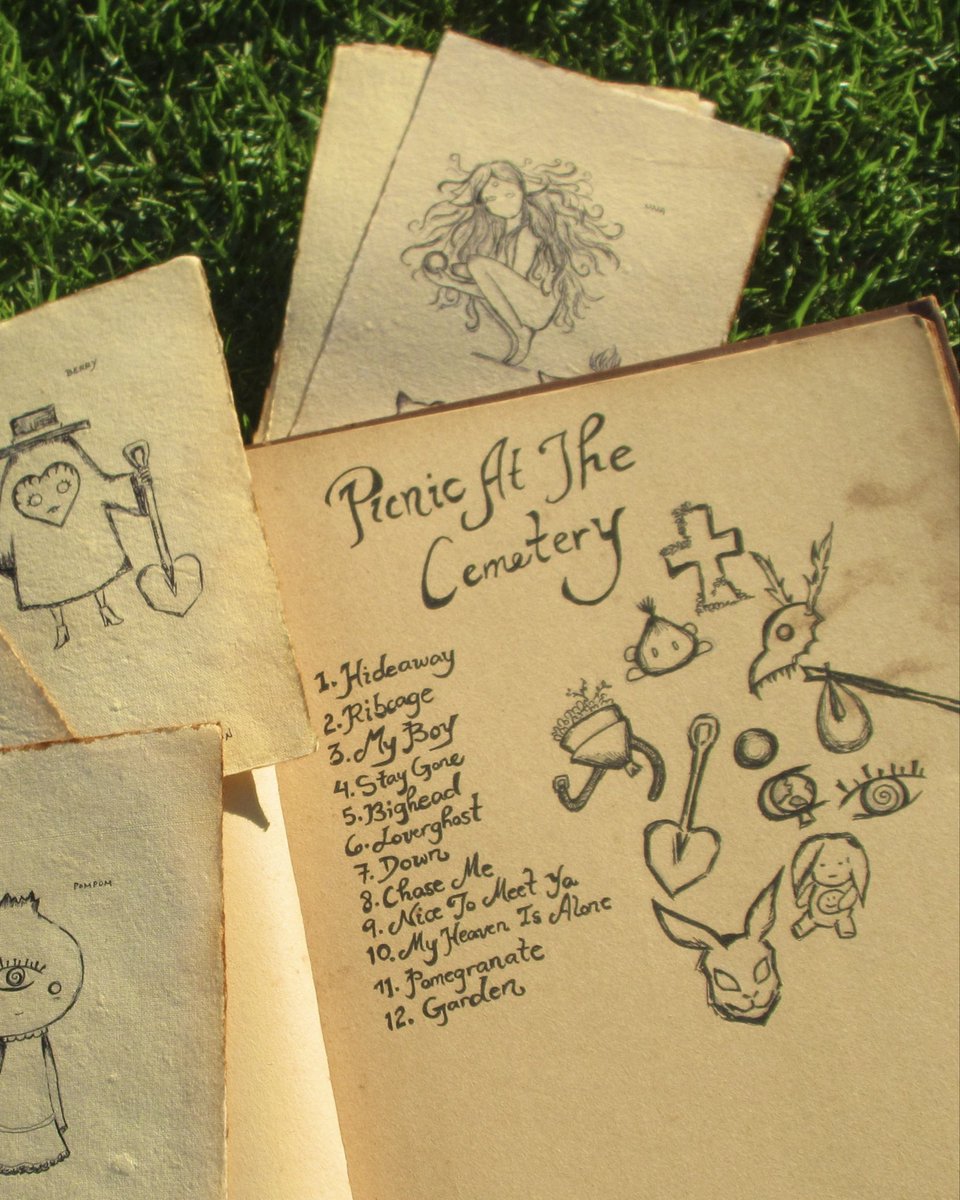 BERRY
POMPOM
Picnic At The
Cemetery
1. Hideaway
2. Ribcage
3. My Boy
4. Stay Gone
5. Bighead
6. Loverghost
7. Down
8. Chase Me
9. Nice To Meet Ya
10. My Heaven Is Alone
11. Pomegranate
12. Garden